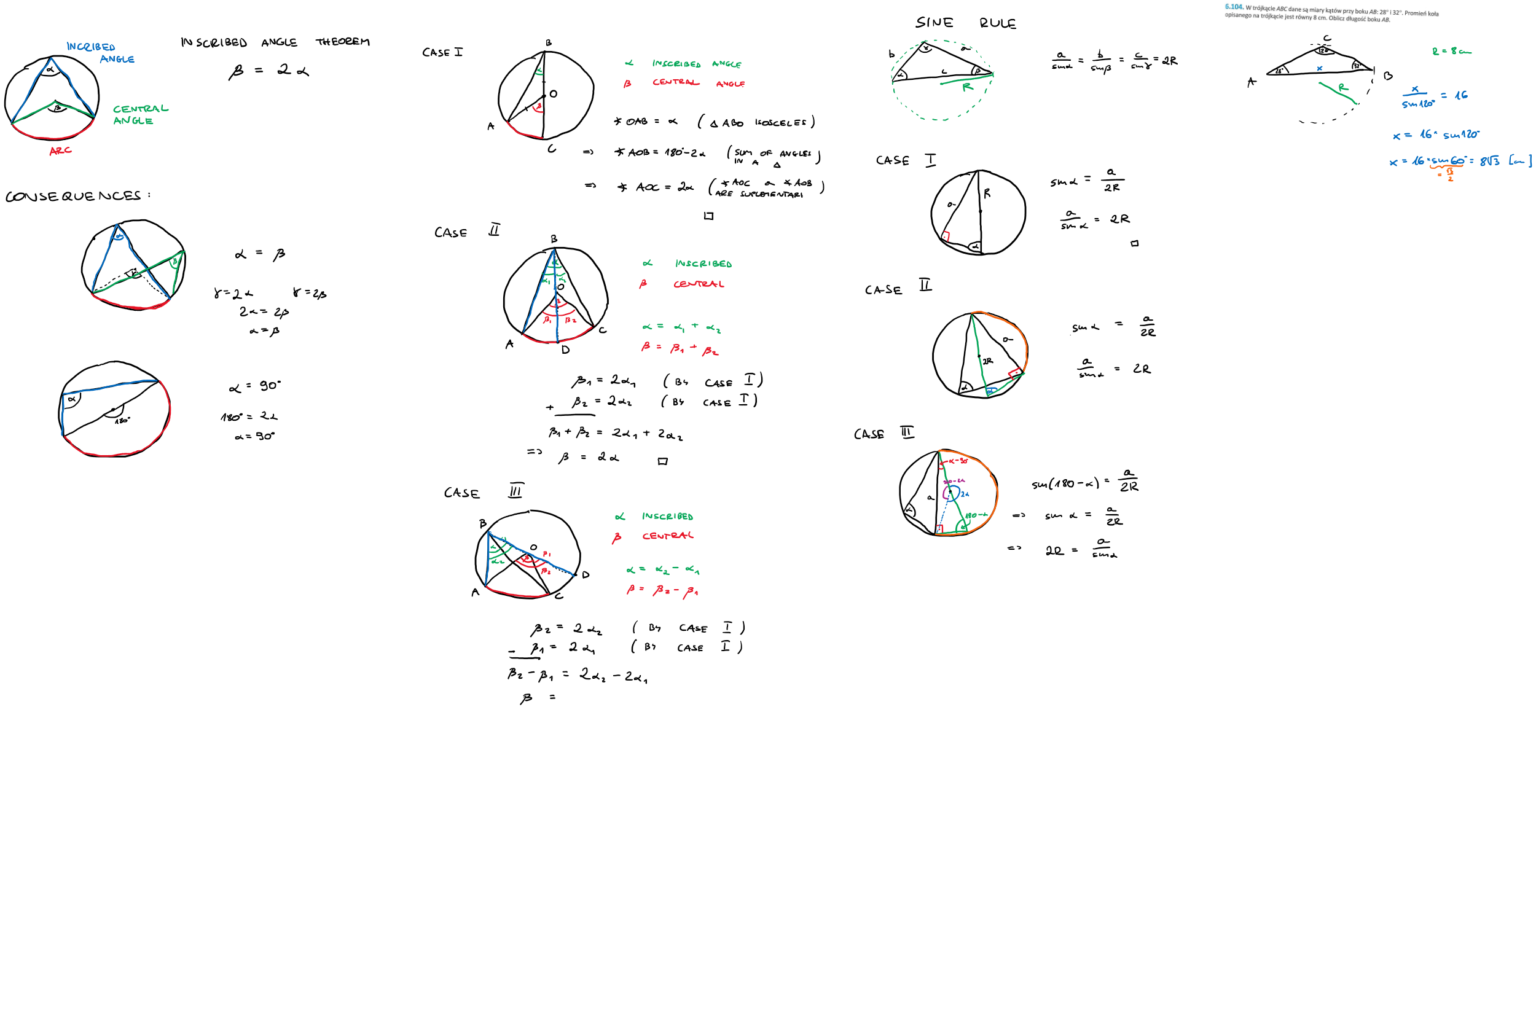 INCRIBED
ANGLE
CENTRAL
ANGLE
ARC
α
β
INSCRIBED ANGLE THEOREM
β = 2α
CONSEQUENCES:
α = β
γ = 2α γ = 2β
2α = 2β
α = β
α
180°
α = 90°
180° = 2α
α = 90°
CASE I
B
O
A
C
α INSCRIBED ANGLE
β CENTRAL ANGLE
∢ OAB = α (△ ABO ISOSCELES)
=> ∢ AOB = 180°-2α (SUM OF ANGLES IN A △)
=> ∢ AOC = 2α (∢ AOC a ∢ AOB ARE SUPLEMENTARI)
□
CASE II
B
O
A
D
C
β₁ β₂
α INSCRIBED
β CENTRAL
α = α₁ + α₂
β = β₁ + β₂
β₁ = 2α₁ (By CASE I)
+ β₂ = 2α₂ (By CASE I)
β₁ + β₂ = 2α₁ + 2α₂
=> β = 2α □
CASE III
B
O
D
A
C
α₂
β₁
β₂
α INSCRIBED
β CENTRAL
α = α₂ - α₁
β = β₂ - β₁
β₂ = 2α₂ (By CASE I)
- β₁ = 2α₁ (By CASE I)
β₂ - β₁ = 2α₂ - 2α₁
β =
SINE RULE
b
a
c
α
β
γ
R
a/sinα = b/sinβ = c/sinγ = 2R
CASE I
a
R
α
sinα = a/2R
a/sinα = 2R
□
CASE II
a
2R
α
sinα = a/2R
a/sinα = 2R
CASE III
α-90
2α
a
180-α
sin(180-α) = a/2R
=> sin α = a/2R
=> 2R = a/sinα
6.104. W trójkącie ABC dane są miary kątów przy boku AB: 28° i 32°. Promień koła
opisanego na trójkącie jest równy 8 cm. Oblicz długość boku AB.
C
A
x
B
R
R = 8cm
x/sin120° = 16
x = 16 · sin120°
x = 16 · sin60° = 8√3 [cm]
= √3/2